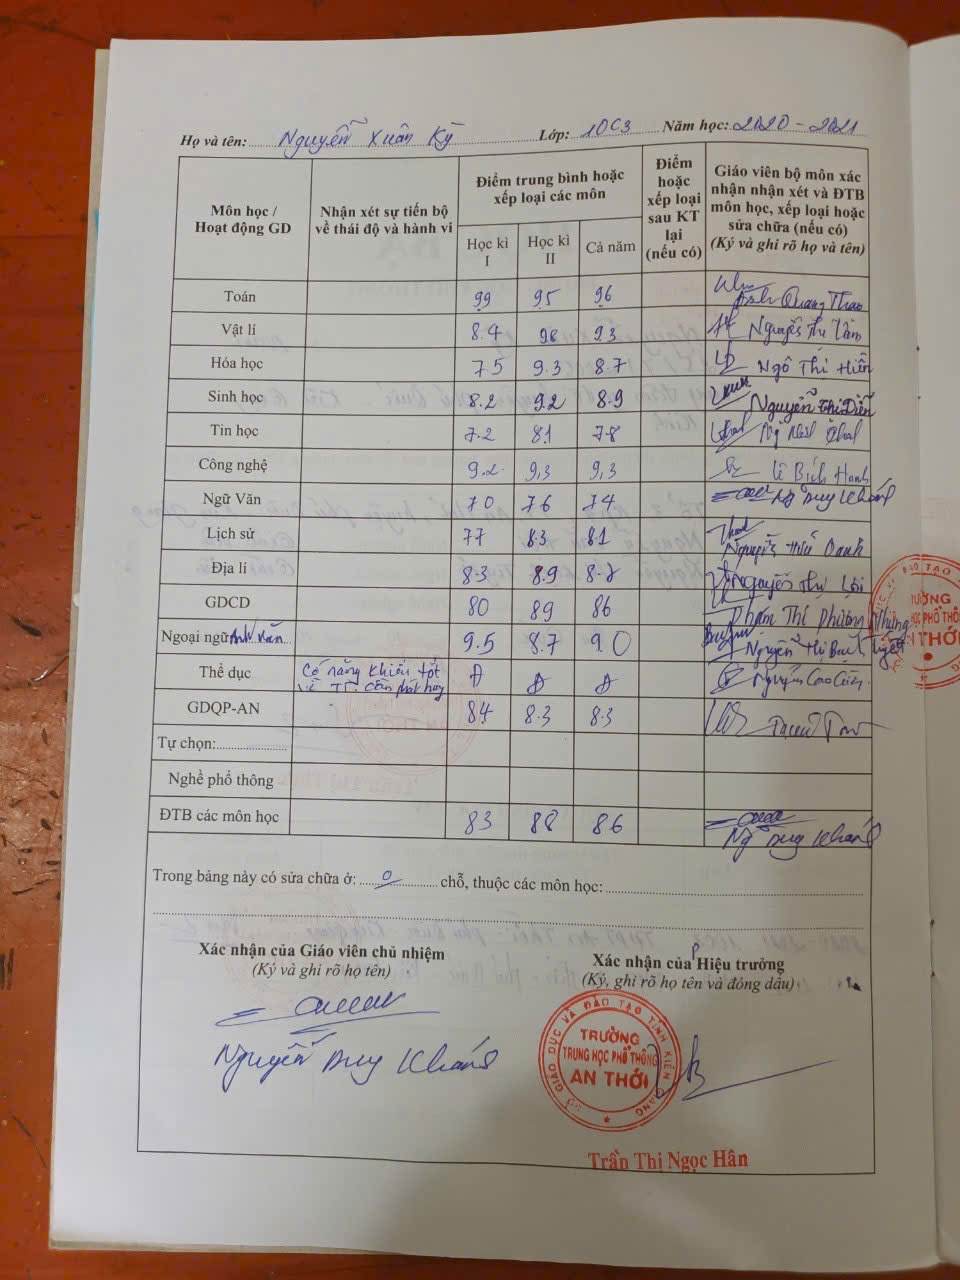 Họ và tên: Nguyễn Xuân Kỳ Lớp: 10C3 Năm học: 2020-2021
Môn học / Hoạt động GD
Nhận xét sự tiến bộ về thái độ và hành vi
Điểm trung bình hoặc xếp loại các môn
Học kì I
Học kì II
Cả năm
Điểm hoặc xếp loại sau KT lại (nếu có)
Giáo viên bộ môn xác nhận nhận xét và ĐTB môn học, xếp loại hoặc sửa chữa (nếu có)
(Ký và ghi rõ họ và tên)
Toán 99 95 96 Quang Thao
Vật lí 8.4 98 93 Nguyễn Thu
Hóa học 7.5 9.3 8.7 Ngô Thị Hiền
Sinh học 8.2 9.2 8.9 Nguyễn Thị Diễn
Tin học 7.2 8.1 7.8
Công nghệ 9.2 9,3 9,3 Lê Bích Hạnh
Ngữ Văn 70 76 74 Ng Duy Khánh
Lịch sử 77 8.3 8.1 Nguyễn Oanh
Địa lí 8.3 8.9 Nguyễn Thị
GDCD 80 89 86 Phạm Thị Phương Nhung
Ngoại ngữ: Anh Văn 9.5 8.7 9.0 Nguyễn Thị Tuyết
Thể dục Có năng khiếu tốt về TT. Cần phát huy Đ Đ Đ Nguyễn Cao
GDQP-AN 84 8.3 8.3
Tự chọn:
Nghề phổ thông
ĐTB các môn học 83 88 86 Ng Duy Khánh
Trong bảng này có sửa chữa ở: 0 chỗ, thuộc các môn học:
Xác nhận của Giáo viên chủ nhiệm
(Ký và ghi rõ họ tên)
Nguyễn Duy Khánh
Xác nhận của P Hiệu trưởng
(Ký, ghi rõ họ tên và đóng dấu)
SỞ GIÁO DỤC VÀ ĐÀO TẠO TỈNH KIÊN GIANG
TRƯỜNG
TRUNG HỌC PHỔ THÔNG
AN THỚI
Trần Thị Ngọc Hân